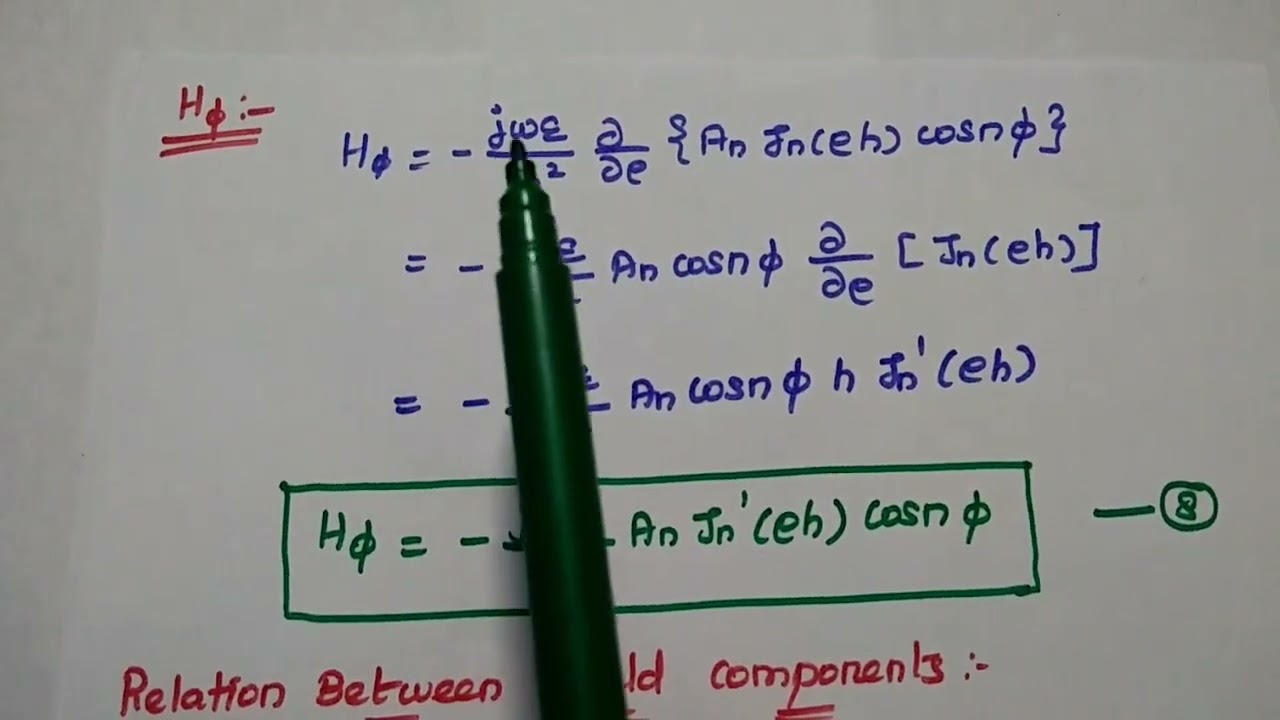 Hϕ :-
Hϕ = - jωε/ 2 ∂/∂ρ {An Jn(ρh) cosnϕ}
= - ε/ An cosnϕ ∂/∂ρ [Jn(ρh)]
= - An cosnϕ h Jn'(ρh)
Hϕ = - An Jn'(ρh) cosnϕ — ⑧
Relation Between ld components :-